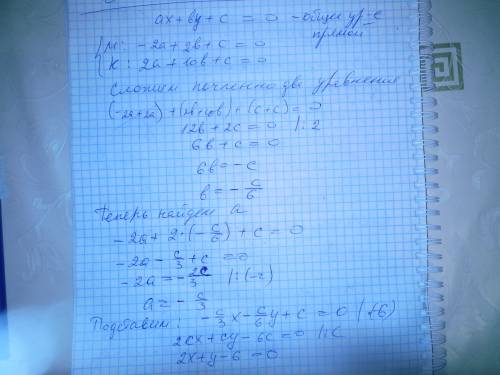 ax + by + c = 0 - общее ур-е
прямой
{ M: -2a + 2b + c = 0
{ K: 2a + 10b + c = 0
Сложим почленно два уравнения
(-2a+2a) + (2b+10b) + (c+c) = 0
12b + 2c = 0 |:2
6b + c = 0
6b = -c
b = -c/6
Теперь найдем a
-2a + 2·(-c/6) + c = 0
-2a - c/3 + c = 0
-2a = -2c/3 |:(-2)
a = -c/3
Подставим: -c/3 x - c/6 y + c = 0 |·(-6)
2cx + cy - 6c = 0 |:c
2x + y - 6 = 0